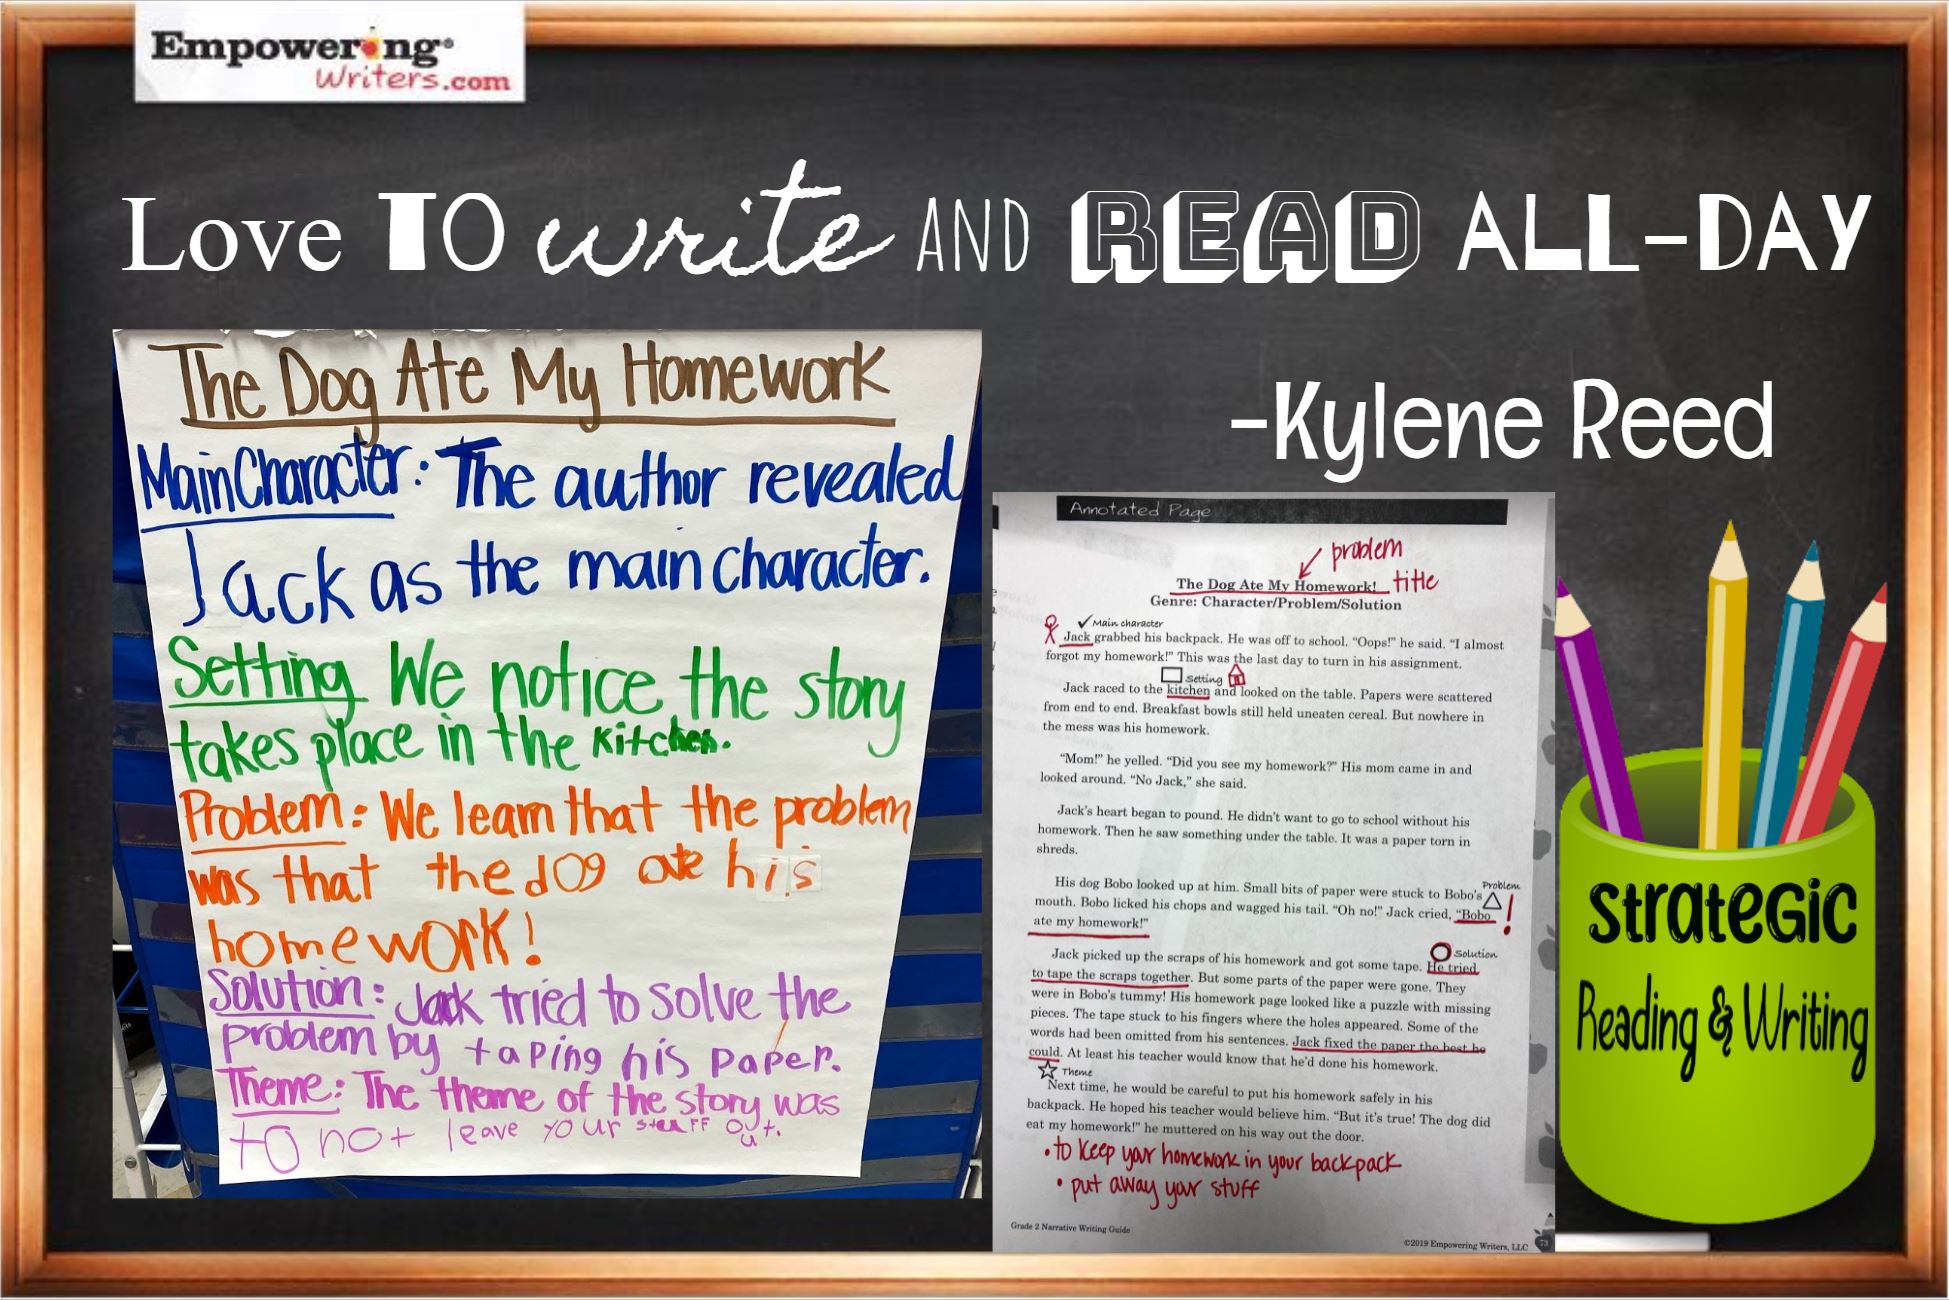 Empowering®
Writers.com
Love TO write AND READ ALL-DAY
-Kylene Reed
The Dog Ate My Homework
Main Character: The author revealed
Jack as the main character.
Setting We notice the story
takes place in the kitchen.
Problem: We learn that the problem
was that the dog ate his
homework!
Solution: Jack tried to solve the
problem by taping his paper.
Theme: The theme of the story was
to not leave your stuff out.
Annotated Page
problem
The Dog Ate My Homework! title
Genre: Character/Problem/Solution
✓ Main character
Jack grabbed his backpack. He was off to school. “Oops!” he said. “I almost
forgot my homework!” This was the last day to turn in his assignment.
Setting
Jack raced to the kitchen and looked on the table. Papers were scattered
from end to end. Breakfast bowls still held uneaten cereal. But nowhere in
the mess was his homework.
“Mom!” he yelled. “Did you see my homework?” His mom came in and
looked around. “No Jack,” she said.
Jack’s heart began to pound. He didn’t want to go to school without his
homework. Then he saw something under the table. It was a paper torn in
shreds.
His dog Bobo looked up at him. Small bits of paper were stuck to Bobo’s Problem
mouth. Bobo licked his chops and wagged his tail. “Oh no!” Jack cried, “Bobo !
ate my homework!”
Solution
Jack picked up the scraps of his homework and got some tape. He tried
to tape the scraps together. But some parts of the paper were gone. They
were in Bobo’s tummy! His homework page looked like a puzzle with missing
pieces. The tape stuck to his fingers where the holes appeared. Some of the
words had been omitted from his sentences. Jack fixed the paper the best he
could. At least his teacher would know that he’d done his homework.
Theme
Next time, he would be careful to put his homework safely in his
backpack. He hoped his teacher would believe him. “But it’s true! The dog did
eat my homework!” he muttered on his way out the door.
• to keep your homework in your backpack
• put away your stuff
Grade 2 Narrative Writing Guide
©2019 Empowering Writers, LLC 73
Strategic
Reading & Writing